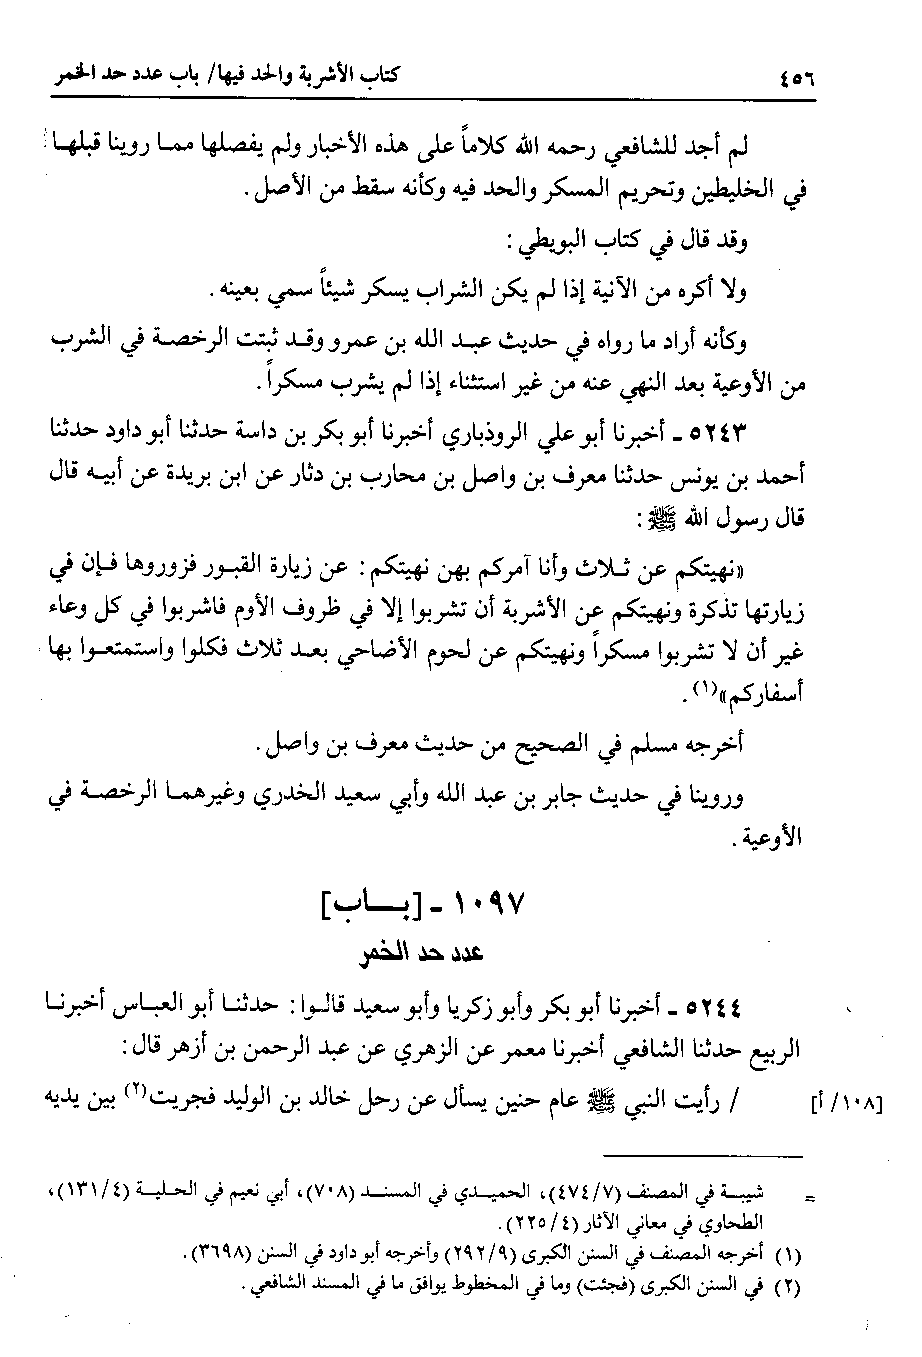 ٤٥٦ كتاب الأشربة والحد فيها/ باب عدد حد الخمر
لم أجد للشافعي رحمه الله كلاماً على هذه الأخبار ولم يفصلها مما روينا قبلها
في الخليطين وتحريم المسكر والحد فيه وكأنه سقط من الأصل.
وقد قال في كتاب البويطي:
ولا أكره من الآنية إذا لم يكن الشراب يسكر شيئاً سمي بعينه.
وكأنه أراد ما رواه في حديث عبد الله بن عمرو وقد ثبتت الرخصة في الشرب
من الأوعية بعد النهي عنه من غير استثناء إذا لم يشرب مسكراً.
٥٢٤٣ ـ أخبرنا أبو علي الروذباري أخبرنا أبو بكر بن داسة حدثنا أبو داود حدثنا
أحمد بن يونس حدثنا معرف بن واصل بن محارب بن دثار عن ابن بريدة عن أبيه قال
قال رسول الله ﷺ:
«نهيتكم عن ثلاث وأنا آمركم بهن نهيتكم: عن زيارة القبور فزوروها فإن في
زيارتها تذكرة ونهيتكم عن الأشربة أن تشربوا إلا في ظروف الأوم فاشربوا في كل وعاء
غير أن لا تشربوا مسكراً ونهيتكم عن لحوم الأضاحي بعد ثلاث فكلوا واستمتعوا بها
أسفاركم»(١).
أخرجه مسلم في الصحيح من حديث معرف بن واصل.
وروينا في حديث جابر بن عبد الله وأبي سعيد الخدري وغيرهما الرخصة في
الأوعية.
١٠٩٧ ـ [باب]
عدد حد الخمر
٥٢٤٤ ـ أخبرنا أبو بكر وأبو زكريا وأبو سعيد قالوا: حدثنا أبو العباس أخبرنا
الربيع حدثنا الشافعي أخبرنا معمر عن الزهري عن عبد الرحمن بن أزهر قال:
[١٠٨/ أ] / رأيت النبي ﷺ عام حنين يسأل عن رحل خالد بن الوليد فجريت(٢) بين يديه
= شيبة في المصنف (٤٧٤/٧)، الحميدي في المسند (٧٠٨)، أبي نعيم في الحلية (١٣١/٤)،
الطحاوي في معاني الآثار (٢٢٥/٤).
(١) أخرجه المصنف في السنن الكبرى (٢٩٢/٩) وأخرجه أبو داود في السنن (٣٦٩٨).
(٢) في السنن الكبرى (فجئت) وما في المخطوط يوافق ما في المسند الشافعي.